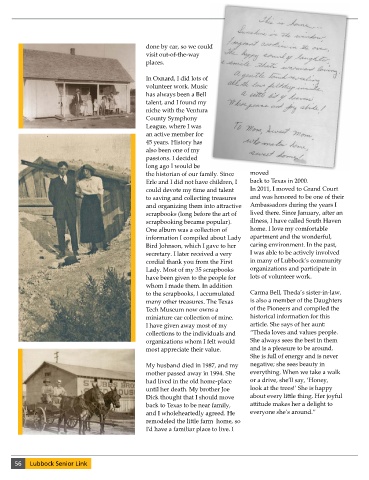 done by car, so we could
visit out-of-the-way
places.
In Oxnard, I did lots of
volunteer work. Music
has always been a Bell
talent, and I found my
niche with the Ventura
County Symphony
League, where I was
an active member for
45 years. History has
also been one of my
passions. I decided
long ago I would be
the historian of our family. Since
Erle and I did not have children, I
could devote my time and talent
to saving and collecting treasures
and organizing them into attractive
scrapbooks (long before the art of
scrapbooking became popular).
One album was a collection of
information I compiled about Lady
Bird Johnson, which I gave to her
secretary. I later received a very
cordial thank you from the First
Lady. Most of my 35 scrapbooks
have been given to the people for
whom I made them. In addition
to the scrapbooks, I accumulated
many other treasures. The Texas
Tech Museum now owns a
miniature car collection of mine.
I have given away most of my
collections to the individuals and
organizations whom I felt would
most appreciate their value.
My husband died in 1987, and my
mother passed away in 1994. She
had lived in the old home-place
until her death. My brother Joe
Dick thought that I should move
back to Texas to be near family,
and I wholeheartedly agreed. He
remodeled the little farm home, so
I'd have a familiar place to live. I
moved
back to Texas in 2000.
In 2011, I moved to Grand Court
and was honored to be one of their
Ambassadors during the years I
lived there. Since January, after an
illness, I have called South Haven
home. I love my comfortable
apartment and the wonderful,
caring environment. In the past,
I was able to be actively involved
in many of Lubbock's community
organizations and participate in
lots of volunteer work.
Carma Bell, Theda's sister-in-law,
is also a member of the Daughters
of the Pioneers and compiled the
historical information for this
article. She says of her aunt:
"Theda loves and values people.
She always sees the best in them
and is a pleasure to be around.
She is full of energy and is never
negative; she sees beauty in
everything. When we take a walk
or a drive, she'll say, 'Honey,
look at the trees!' She is happy
about every little thing. Her joyful
attitude makes her a delight to
everyone she's around."
56 Lubbock Senior Link